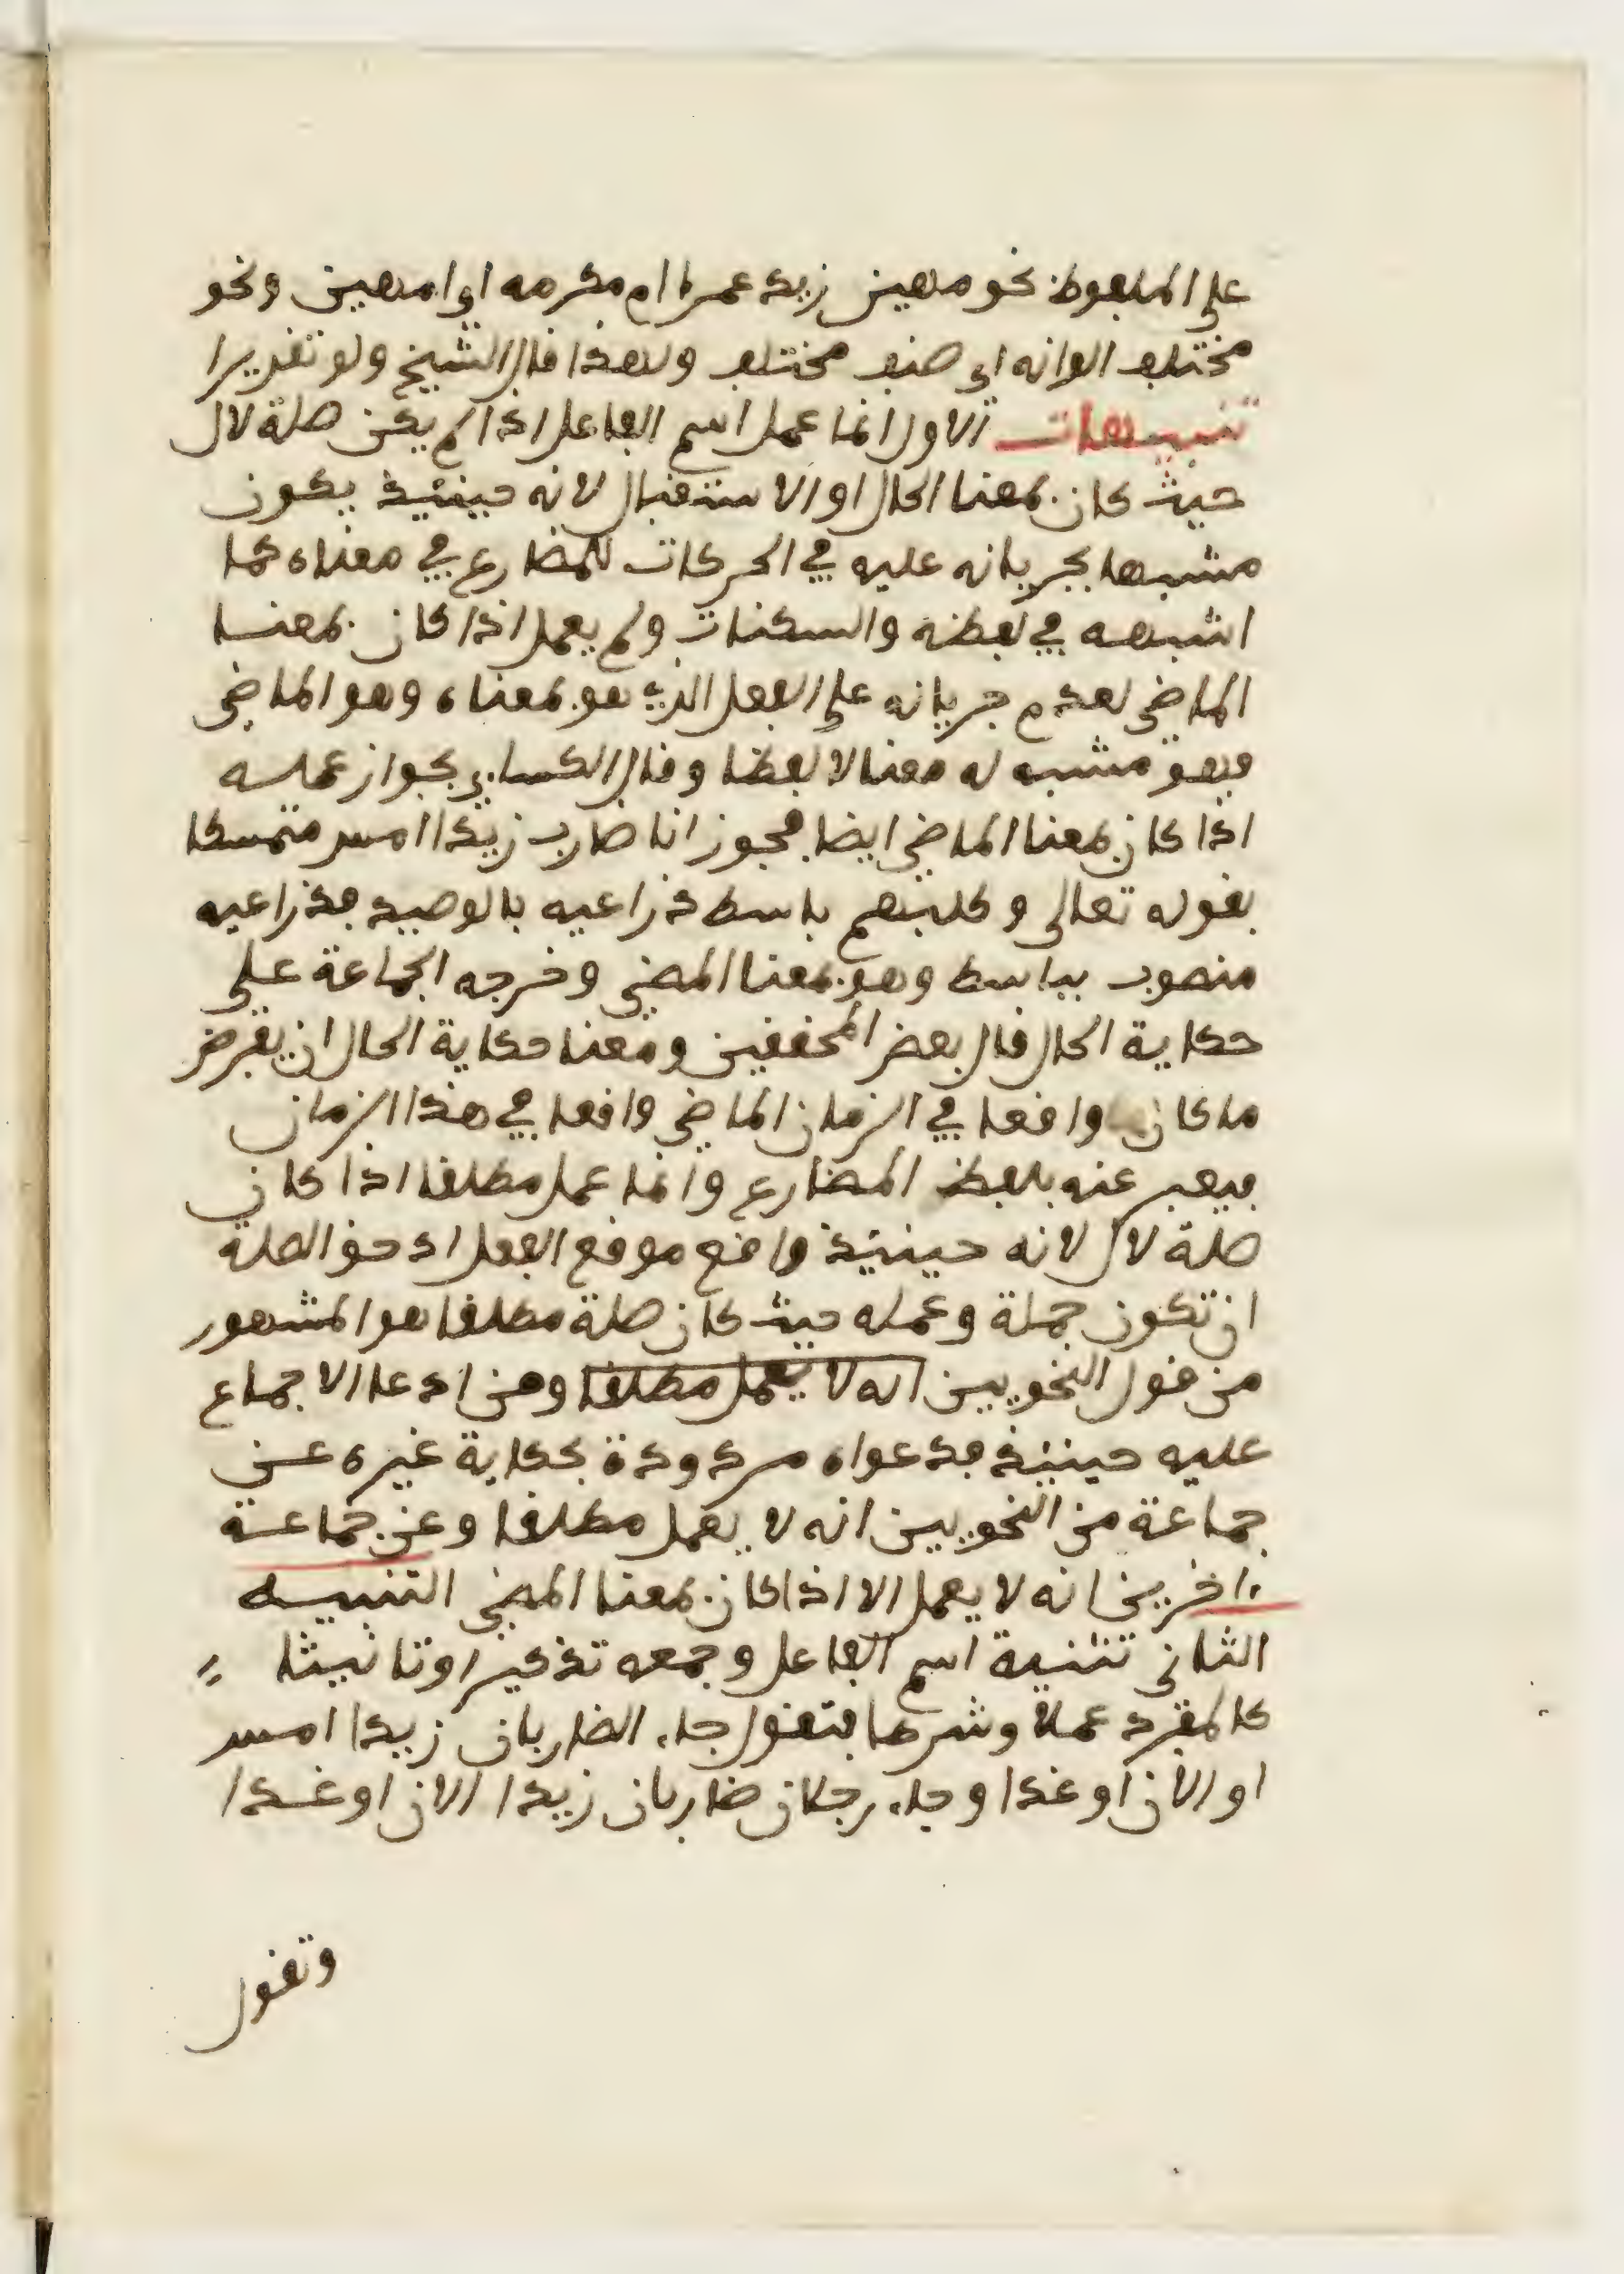 على الملفوظ نحو مهين زيد عمرا ام مكرمه اي امهين ونحو
مختلف الوانه اي صنف مختلف ولهذا قال الشيخ ولو تقديرا
تنبيهات الاول انما عمل اسم الفاعل اذا لم يكن صلة لال
حيث كان بمعنا الحال او الاستقبال لانه حينئذ يكون
مشبها بجريانه عليه في الحركات للمضارع في معناه كما
اشبهه في لفظه والسكنات ولم يعمل اذا كان بمعنا
الماضي لعدم جريانه على الفعل الذي هو بمعناه وهو الماضي
فهو مشبه له معنا لا لفظا وقال الكسايي بجواز عمله
اذا كان بمعنا الماضي ايضا فيجوز انا ضارب زيدا امس متمسكا
بقوله تعالى وكلبهم باسط ذراعيه بالوصيد فذراعيه
منصوب بباسط وهو بمعنا المضي وخرجه الجماعة على
حكاية الحال قال بعض المحققين ومعنا حكاية الحال ان يفرض
ما كان واقعا في الزمان الماضي واقعا في هذا الزمان
فيعبر عنه بلفظ المضارع وانما عمل مطلقا اذا كان
صلة لال لانه حينئذ واقع موقع الفعل اذ حق الصلة
ان تكون جملة وعمله حيث كان صلة مطلقا هو المشهور
من قول النحويين انه لا يعمل مطلقا ومن ادعا الاجماع
عليه حينئذ فدعواه مردودة بحكاية غيره عن
جماعة من النحويين انه لا يعمل مطلقا وعن جماعة
اخرين انه لا يعمل الا اذا كان بمعنا المضي التنبيه
الثاني تثنية اسم الفاعل وجمعه تذكيرا وتانيثا
كالمفرد عملا وشرطا فتقول جاء الضاربان زيدا امس
او الان او غدا وجاء رجلان ضاربان زيدا الان او غدا
وتقول